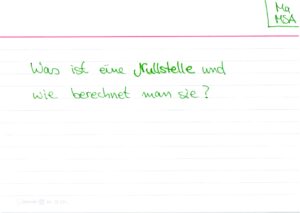 Ma
MSA
Was ist eine Nullstelle und
wie berechnet man sie?